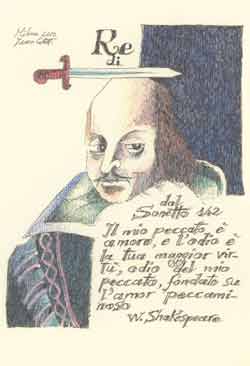 Re
di
dal
Sonetto 142
Il mio peccato, è
amore, e l'odio è
la tua maggior vir-
tù, odio del mio
peccato, fondato su
l'amor peccami-
noso
W. Shakespeare